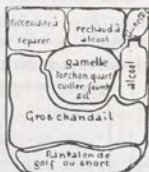 nécessaire à
réparer
rechaud à
alcool
alcool
gamelle
torchon quart
cuiller fourch
sel
Gros chandail
Pantalon de
golf ou short